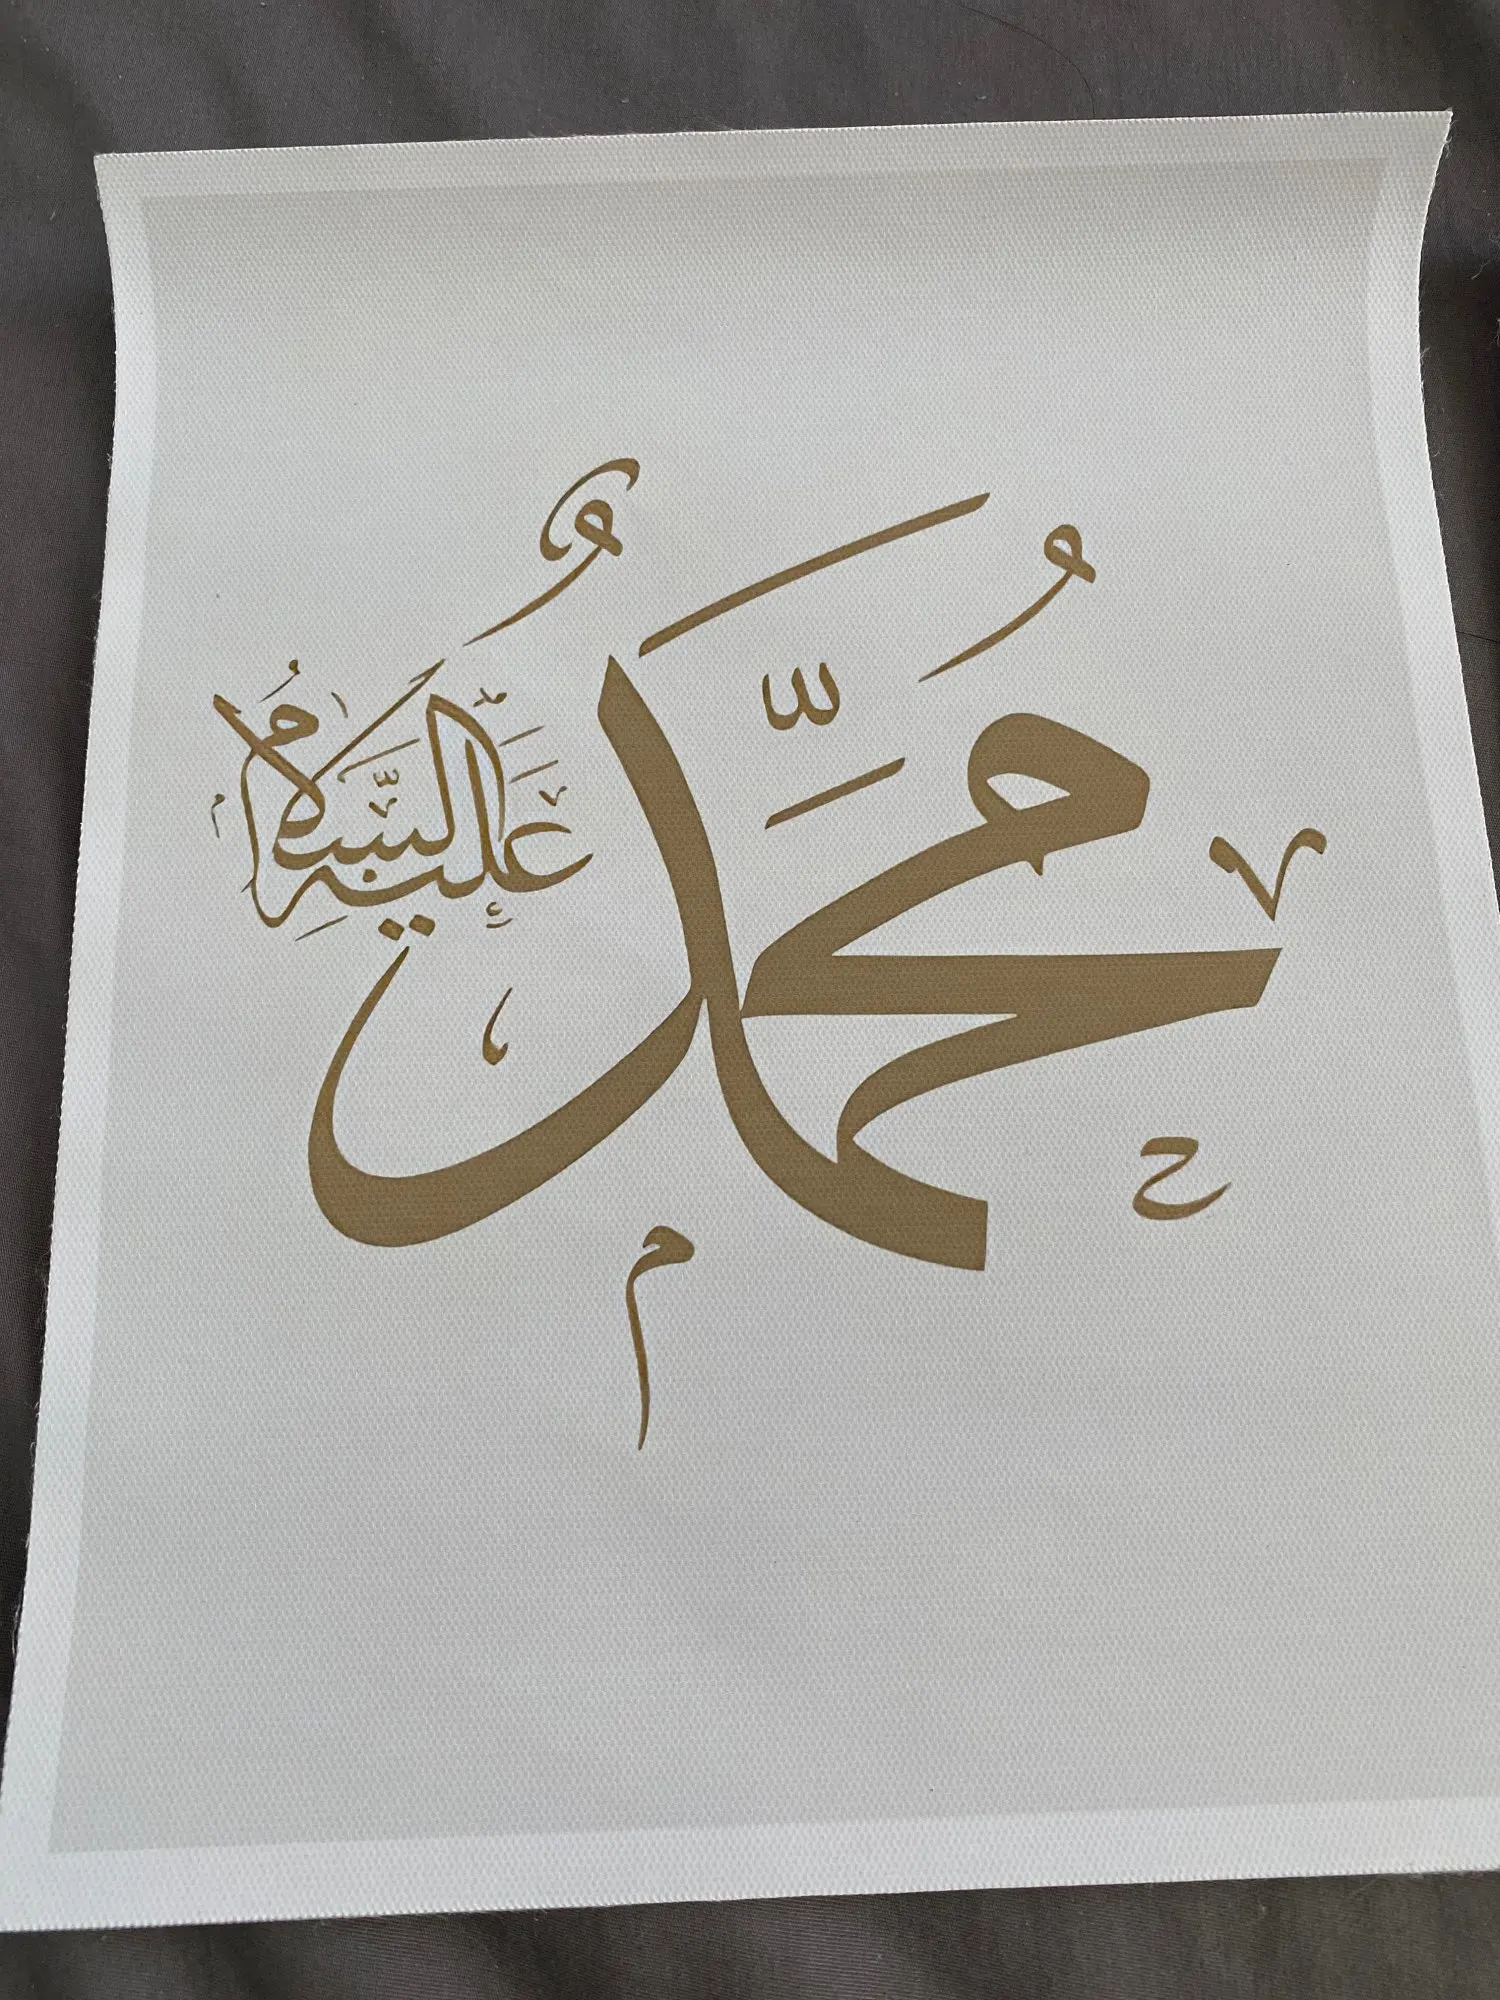 مُحَمَّدٌ
عَلَيْهِ السَّلَامُ